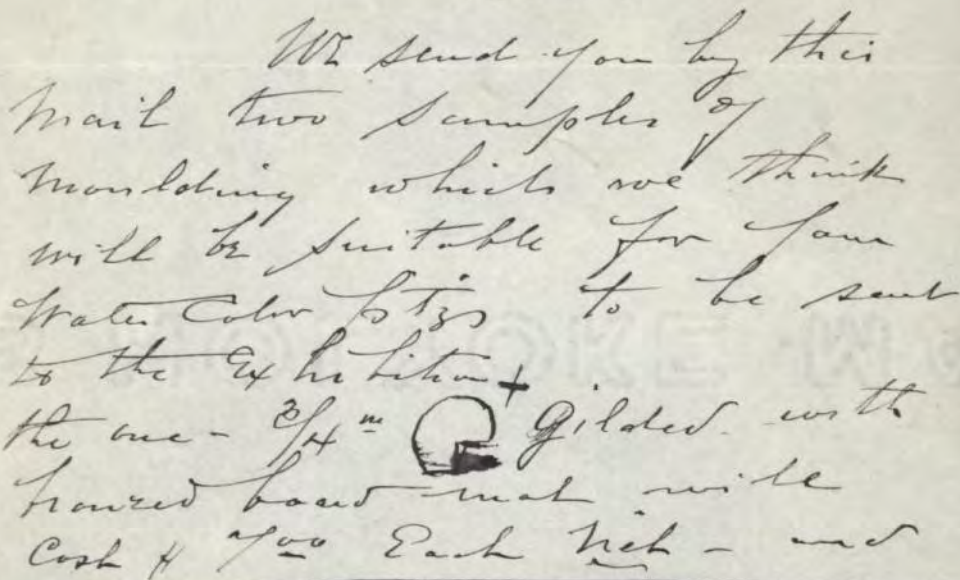 We send you by this
Mail two samples of
Moulding which we think
will be suitable for your
Water Color ptgs to be sent
to the Exhibition +
the one - 3/4 in Gilded with
bronzed board mat will
Cost $ Each Net - and